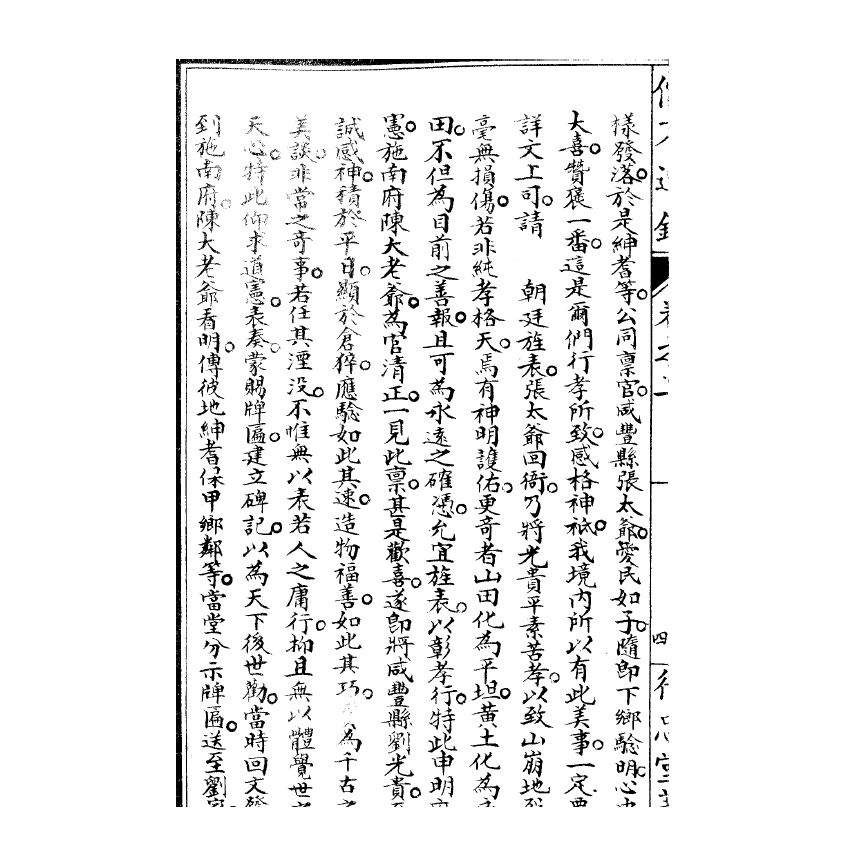 樣發落。於是紳耆等。公同稟官。咸豐縣張太爺。愛民如子。隨即下鄉驗明。心中
大喜。贊褒一番。這是爾們行孝所致。感格神祇。我境內所以有此美事。一定要
詳文上司。請 朝廷旌表。張太爺回衙。乃將光貴平素苦孝。以致山崩地裂
毫無損傷。若非純孝格天。焉有神明護佑。更奇者山田化為平坦。黃土化為
田。不但為目前之善報。且可為永遠之確憑。允宜旌表。以彰孝行。特此申明
憲。施南府陳大老爺。為官清正。一見此稟。甚是歡喜。遂即將咸豐縣劉光貴
誠感神。積於平日。顯於倉猝。應驗如此其速。造物福善。如此其巧。為千古
美談。非常之奇事。若任其湮沒。不惟無以表若人之庸行。抑且無以體覺世
天心。特此仰求道憲。表奏。蒙賜牌匾。建立碑記。以為天下後世勸。當時回文發
到施南府。陳大老爺看明。傳彼地紳耆保甲鄉鄰等。當堂分示牌匾。送至劉家
卷之一
四